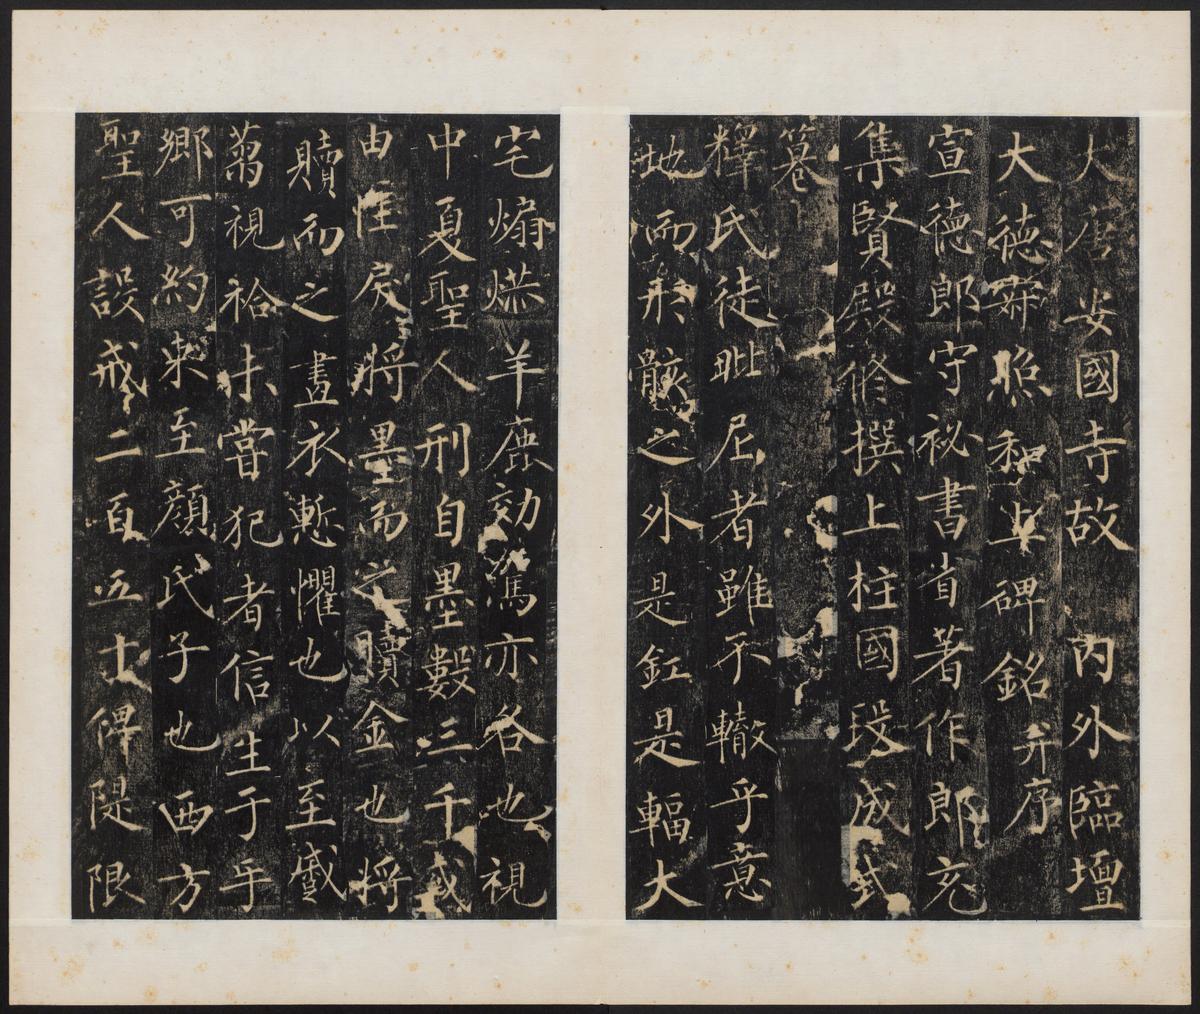 大唐安國寺故內外臨壇
大德寂照和上碑銘并序
宣德郎守祕書省著作郎充
集賢殿修撰上柱國段成式
篹
釋氏徒毗尼者雖不轍乎意
地而形骸之外是釭是輻大
宅煽㷊羊鹿効駕亦各也視
中夏聖人刑自墨數三千或
由性戾將墨而之贖金也將
贖而之晝衣慙懼也以至戚
蒭視袷未嘗犯者信生于乎
鄉可約束至顏氏子也西方
聖人設戒二百五十俾隄限